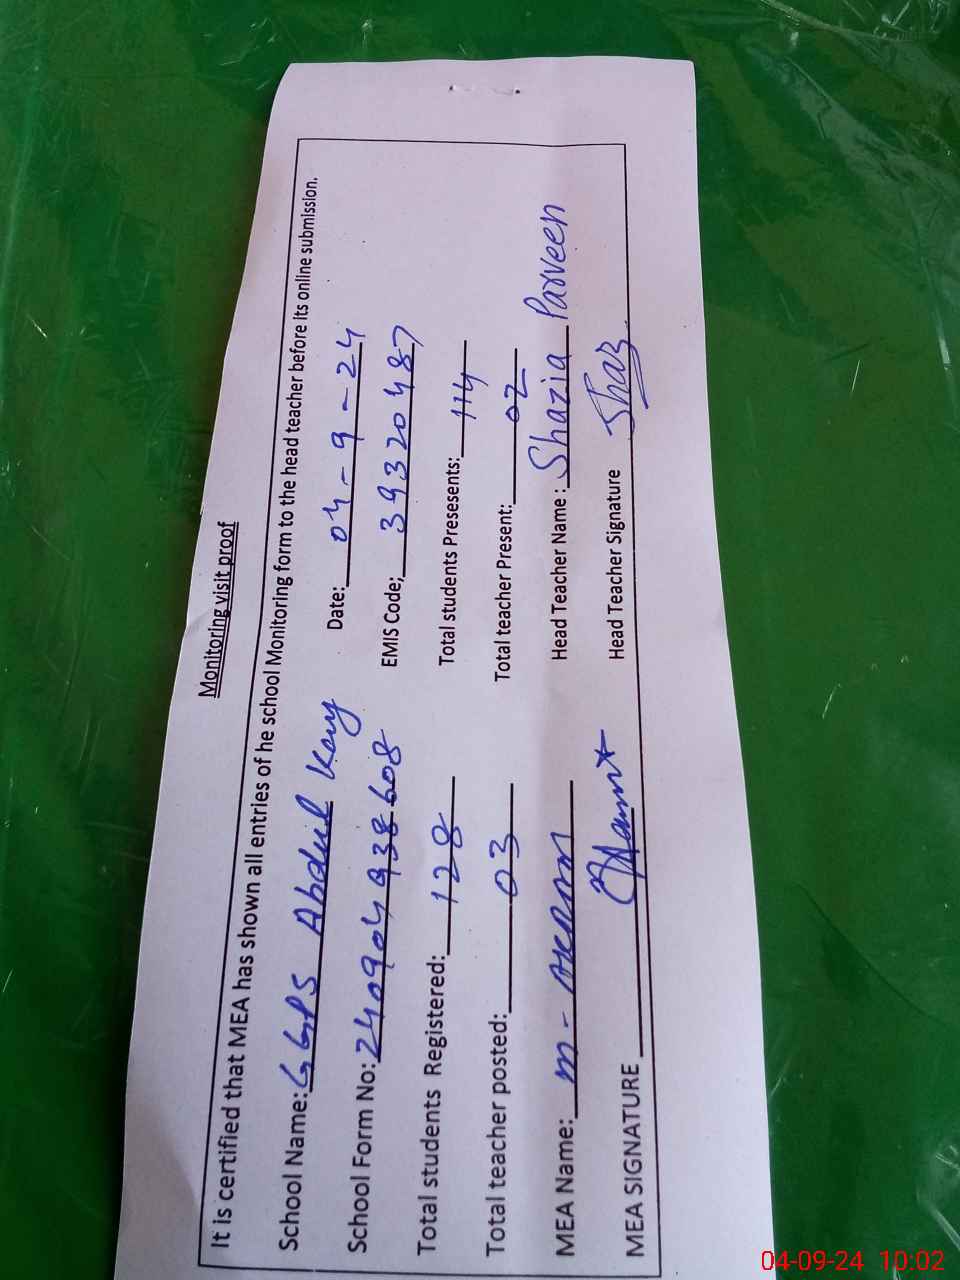 Monitoring visit proof
It is certified that MEA has shown all entries of he school Monitoring form to the head teacher before its online submission.
School Name: GGPS Abdul Kay Date: 04-9-24
School Form No: 240904938608 EMIS Code; 39320487
Total students Registered: 128 Total students Presesents: 114
Total teacher posted: 03 Total teacher Present: 02
MEA Name: m-Akram Head Teacher Name: Shazia Parveen
MEA SIGNATURE Head Teacher Signature Shaz
04-09-24 10:02